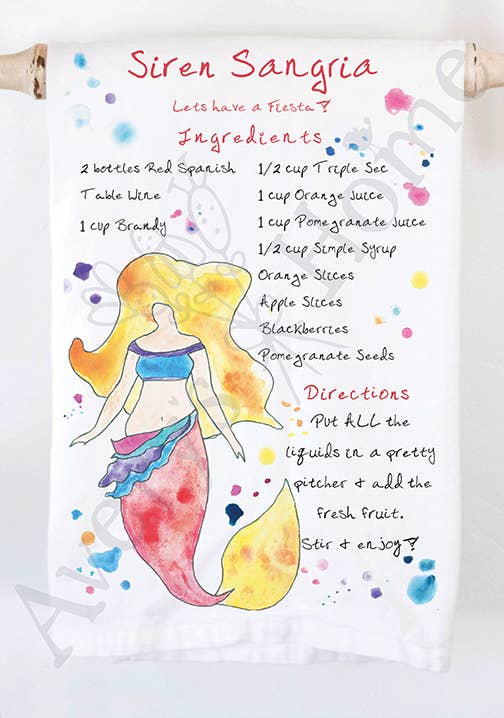 Siren Sangria
Lets have a Fiesta!
Ingredients
2 bottles Red Spanish
Table Wine
1 cup Brandy
1/2 cup Triple Sec
1 cup Orange Juice
1 cup Pomegranate Juice
1/2 cup Simple Syrup
Orange Slices
Apple Slices
Blackberries
Pomegranate Seeds
Directions
Put ALL the
liquids in a pretty
pitcher & add the
fresh fruit.
Stir & enjoy!
Avery's Home